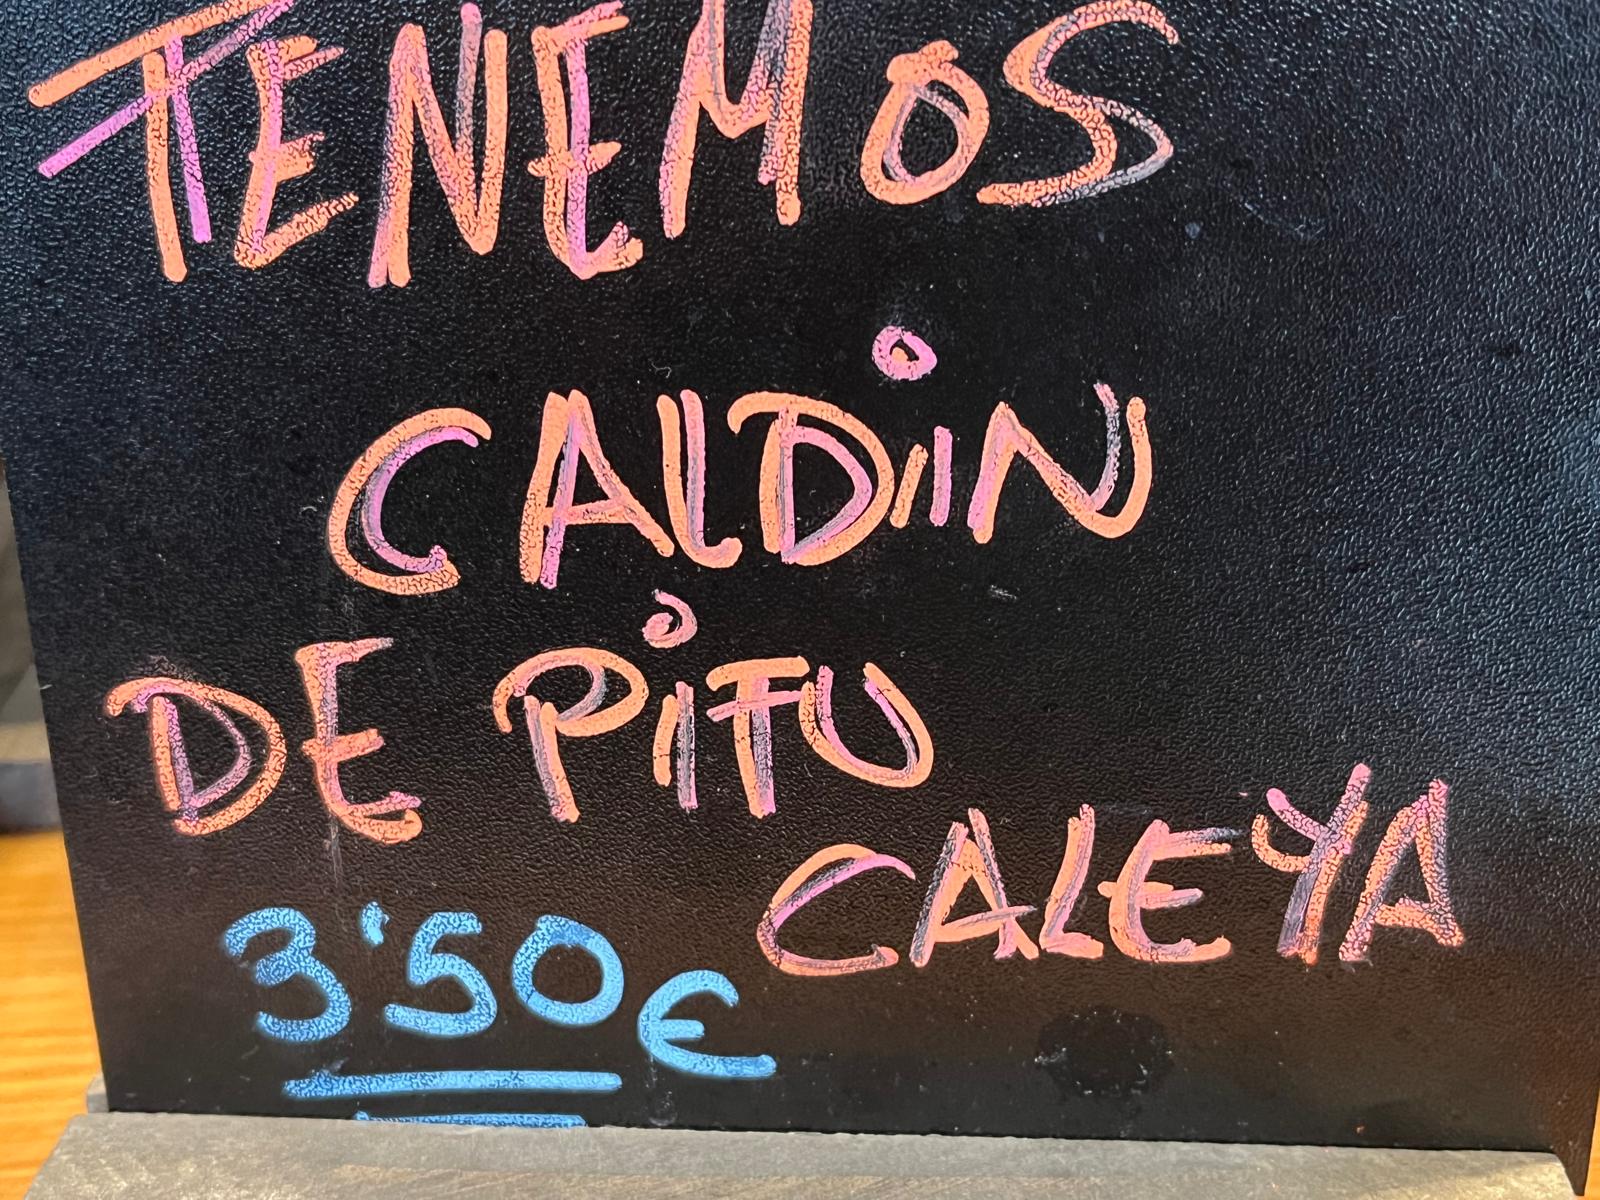 TENEMOS
CALDiN
DE PiFU
CALEYA
3'50€